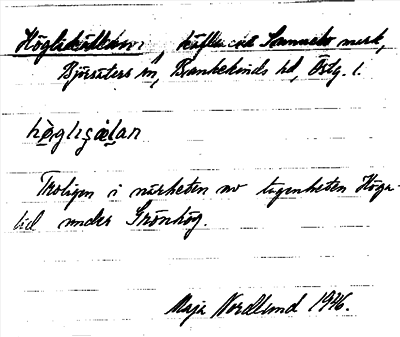 Höglidkällan, källa vid Sammels mark,
Björsäters sn, Bankekinds hd, Östg. l.
hög̥liʂälan
Troligen i närheten av lägenheten Höga-
lid under Grönhög.
Maja Nordlund 1946.